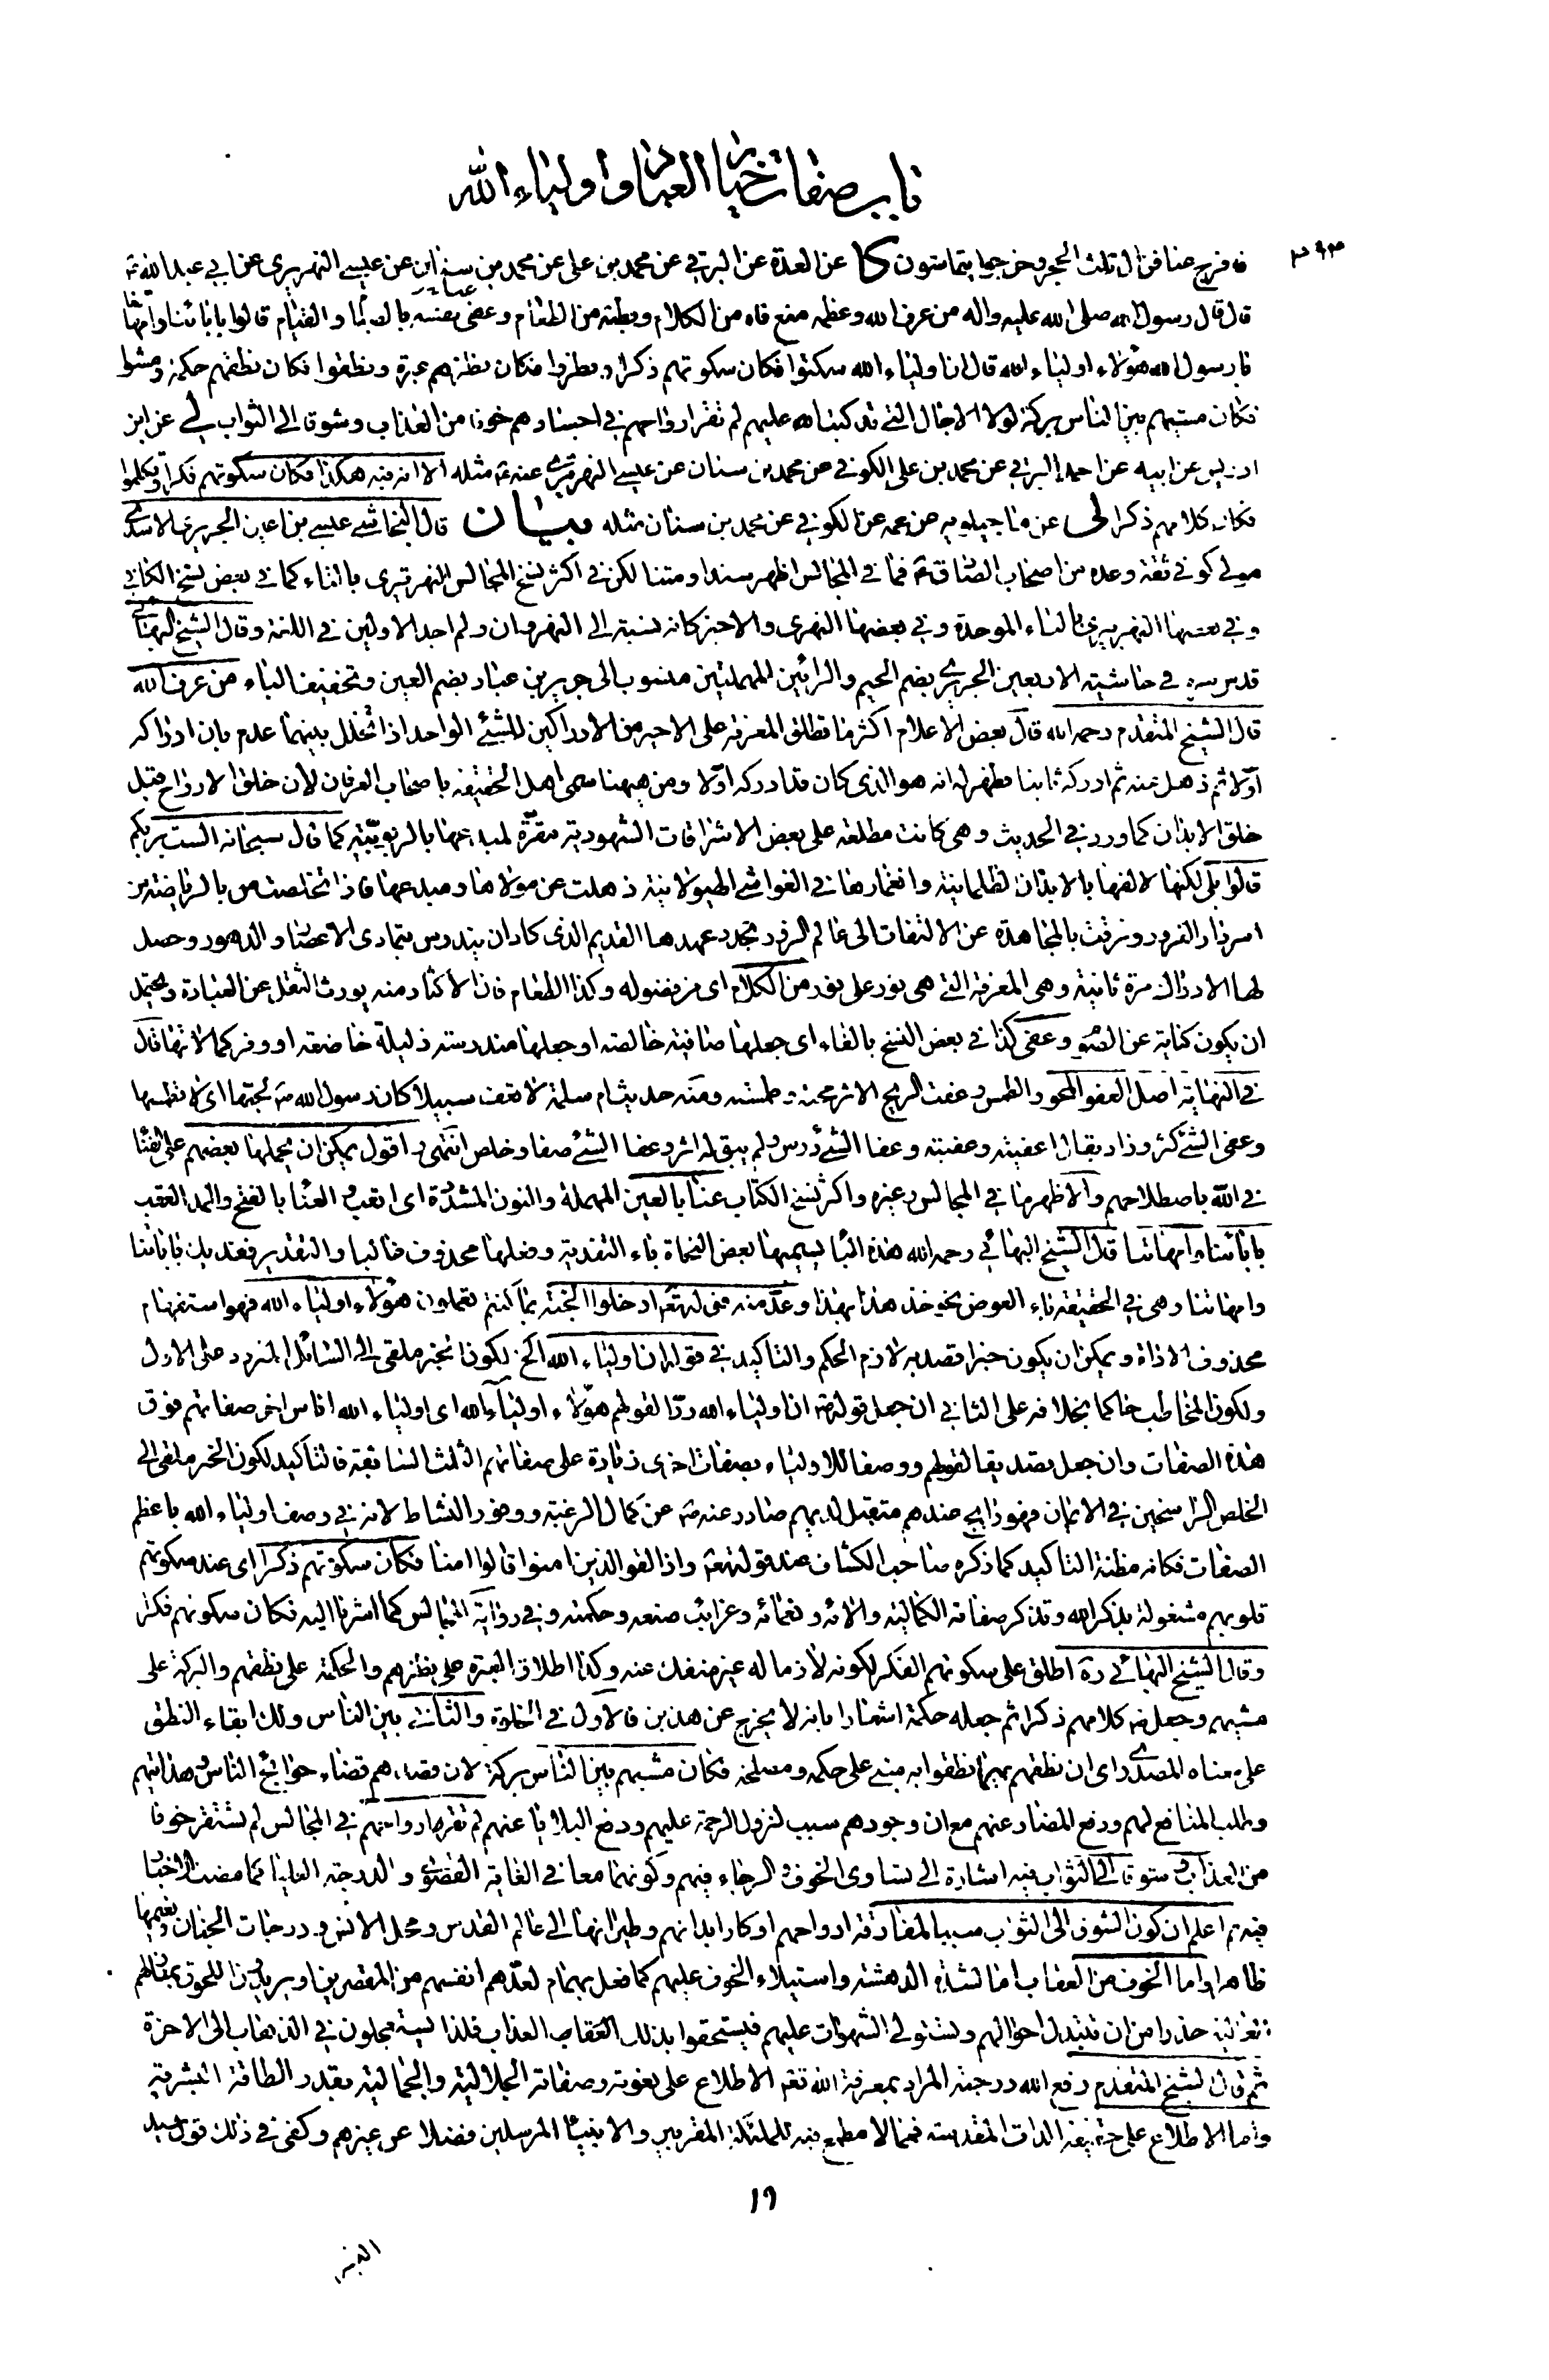 باب صفات خيار العباد واولياء الله
٣٩٣
فافرج عنا فزال ثلث الحجر وخرجوا يتماشون كا عن العدة عن البرقي عن محمد بن علي عن محمد بن سنان عن عيسى النهريري عن ابي عبد الله ع
قال قال رسول الله صلى الله عليه واله من عرف الله وعظمه منع فاه من الكلام وبطنه من الطعام وعفى نفسه بالصيام والقيام قالوا بابائنا وامهاتنا
يا رسول الله هؤلاء اولياء الله قال ان اولياء الله سكتوا فكان سكوتهم ذكرا ونظروا فكان نظرهم عبرة ونطقوا فكان نطقهم حكمة ومشوا
فكان مشيهم بين الناس بركة لولا الاجال التي قد كتب الله عليهم لم تقر ارواحهم في اجسادهم خوفا من العذاب وشوقا الى الثواب لي عن ابن
ادريس عن ابيه عن احمد البرقي عن محمد بن علي الكوفي عن محمد بن سنان عن عيسى النهرتيري عنه ع مثله الا ان فيه هكذا فكان سكوتهم فكرا وتكلموا
فكان كلامهم ذكرا لى عن ماجيلويه عن عمه عن الكوفي عن محمد بن سنان مثله بيان قال النجاشي عيسى بن اعين الجريري الاسدي
مولى كوفي ثقة وعده من اصحاب الصادق ع فما في المجالس اظهر سندا ومتنا لكن في اكثر نسخ المجالس النهرتيري بالتاء كما في بعض نسخ الكافي
وفي بعضها النهربيري بالباء الموحدة وفي بعضها النهري والاخير كانه نسبة الى النهروان ولم اجد الاولين في اللغة وقال الشيخ البهائي
قدس سره في حاشية الاربعين الجريري بضم الجيم والرائين المهملتين منسوب الى جرير بن عباد بضم العين وتخفيف الباء من عرف الله
قال الشيخ المتقدم رحمه الله قال بعض الاعلام اكثر ما تطلق المعرفة على الاخير من الادراكين للشئ الواحد اذا تخلل بينهما عدم بان ادركه
اولا ثم ذهل عنه ثم ادركه ثانيا فظهر له انه هو الذي كان قد ادركه اولا ومن ههنا سمى اهل الحقيقة باصحاب العرفان لان خلق الارواح قبل
خلق الابدان كما ورد في الحديث وهي كانت مطلعة على بعض الاشراقات الشهودية مقرة لمبدعها بالربوبية كما قال سبحانه الست بربكم
قالوا بلى لكنها لالفها بالابدان الظلمانية وانغمارها في الغواشي الهيولانية ذهلت عن مولاها ومبدعها فاذا تخلصت من بالرياضة من
اسر دار الغرور وترقت بالمجاهدة عن الالتفات الى عالم الزور تجدد عهدها القديم الذي كاد ان يندرس بتمادي الاعصار والدهور وحصل
لها الادراك مرة ثانية وهي المعرفة التي هي نور على نور من الكلام اي من فضوله وكذا الطعام فان الاكثار منه يورث الثقل عن العبادة ويحتمل
ان يكون كناية عن الصوم وعفى كذا في بعض النسخ بالفاء اي جعلها صافية خالصة او جعلها مندرسة ذليلة خاضعة او وفر كمالاتها قال
في النهاية اصل العفو المحو والطمس وعفت الريح الاثر محته وطمسته ومنه حديث ام سلمة لا تعف سبيلا كان رسول الله ص لحبها اي لا تطمسها
وعفى الشئ كثر وزاد يقال اعفيته وعفيته وعفا الشئ درس ولم يبق له اثر وعفا الشئ صفا وخلص انتهى واقول يمكن ان يحملها بعضهم على الفناء
في الله باصطلاحهم والاظهر ما في المجالس وغيره واكثر نسخ الكتاب عنا بالعين المهملة والنون المشددة اي اتعب والعنا بالفتح والمد التعب
بابائنا وامهاتنا قال الشيخ البهائي رحمه الله هذه الباء يسميها بعض النحاة باء التفدية وفعلها محذوف غالبا والتقدير نفديك بابائنا
وامهاتنا وهي في الحقيقة باء العوض نحو خذ هذا بهذا وعد منه قوله تعالى ادخلوا الجنة بما كنتم تعملون هؤلاء اولياء الله فهو استفهام
محذوف الاداة ويمكن ان يكون خبرا قصد به لازم الحكم والتاكيد في قوله ان اولياء الله الخ لكون الخبر ملقى الى السائل المتردد على الاول
ولكون المخاطب حاكما بخلافه على الثاني ان جعل قوله ص ان اولياء الله ردا لقولهم هؤلاء اولياء الله اي اولياء الله اناس اخر صفاتهم فوق
هذه الصفات وان جعل تصديقا لقولهم ووصفا للاولياء بصفات اخرى زيادة على صفاتهم الثلث السابقة فالتاكيد لكون الخبر ملقى الى
الخلص الراسخين في الايمان فهو رايج عندهم متقبل لديهم صادر عنه ص عن كمال الرغبة ووفور النشاط لانه في وصف اولياء الله باعظم
الصفات فكانه مظنة التاكيد كما ذكره صاحب الكشاف عند قوله تعالى واذا لقوا الذين امنوا قالوا امنا فكان سكوتهم ذكرا اي عند سكوتهم
قلوبهم مشغولة بذكر الله وتذكر صفاته الكمالية والائه ونعمائه وغرائب صنعه وحكمته وفي رواية المجالس كما اشرنا اليه فكان سكوتهم فكرا
وقال الشيخ البهائي ره اطلق على سكوتهم الفكر لكونه لازما له غير منفك عنه وكذا اطلاق العبرة على نظرهم والحكمة على نطقهم والبركة على
مشيهم وجعل ص كلامهم ذكرا ثم جعله حكمة اشعارا بانه لا يخرج عن هذين فالاول في الخلوة والثاني بين الناس ولك ابقاء النطق
على معناه المصدري اي ان نطقهم بما نطقوا به مبني على حكمة ومصلحة فكان مشيهم بين الناس بركة لان قصدهم قضاء حوائج الناس وهدايتهم
وطلب المنافع لهم ودفع المضار عنهم مع ان وجودهم سبب لنزول الرحمة عليهم ودفع البلايا عنهم لم تقر ارواحهم في المجالس لم تستقر خوفا
من العذاب وشوقا الى الثواب فيه اشارة الى تساوي الخوف والرجاء فيهم وكونهما معا في الغاية القصوى والدرجة العليا كما مضت الاخبار
فيه ثم اعلم ان كون الشوق الى الثواب سببا لمفارقة ارواحهم اوكار ابدانهم وطيرانها الى عالم القدس ومحل الانس ودرجات الجنان ونعيمها
ظاهر واما الخوف من العقاب اما لشدة الدهشة واستيلاء الخوف عليهم كما فعل بهمام لعدهم انفسهم من المقصرين او يريدون اللحوق بمنازلهم
العالية حذرا من ان تتبدل احوالهم وتستولي الشهوات عليهم فيستحقوا بذلك العقاب العذاب فلذا يستعجلون في الذهاب الى الاخرة
ثم قال الشيخ المتقدم رفع الله درجته المراد بمعرفة الله تعالى الاطلاع على نعوته وصفاته الجلالية والجمالية بقدر الطاقة البشرية
واما الاطلاع على حقيقة الذات المقدسة فمما لا مطمع فيه للملئكة المقربين والانبياء المرسلين فضلا عن غيرهم وكفى في ذلك قول سيد
١٦
البشر